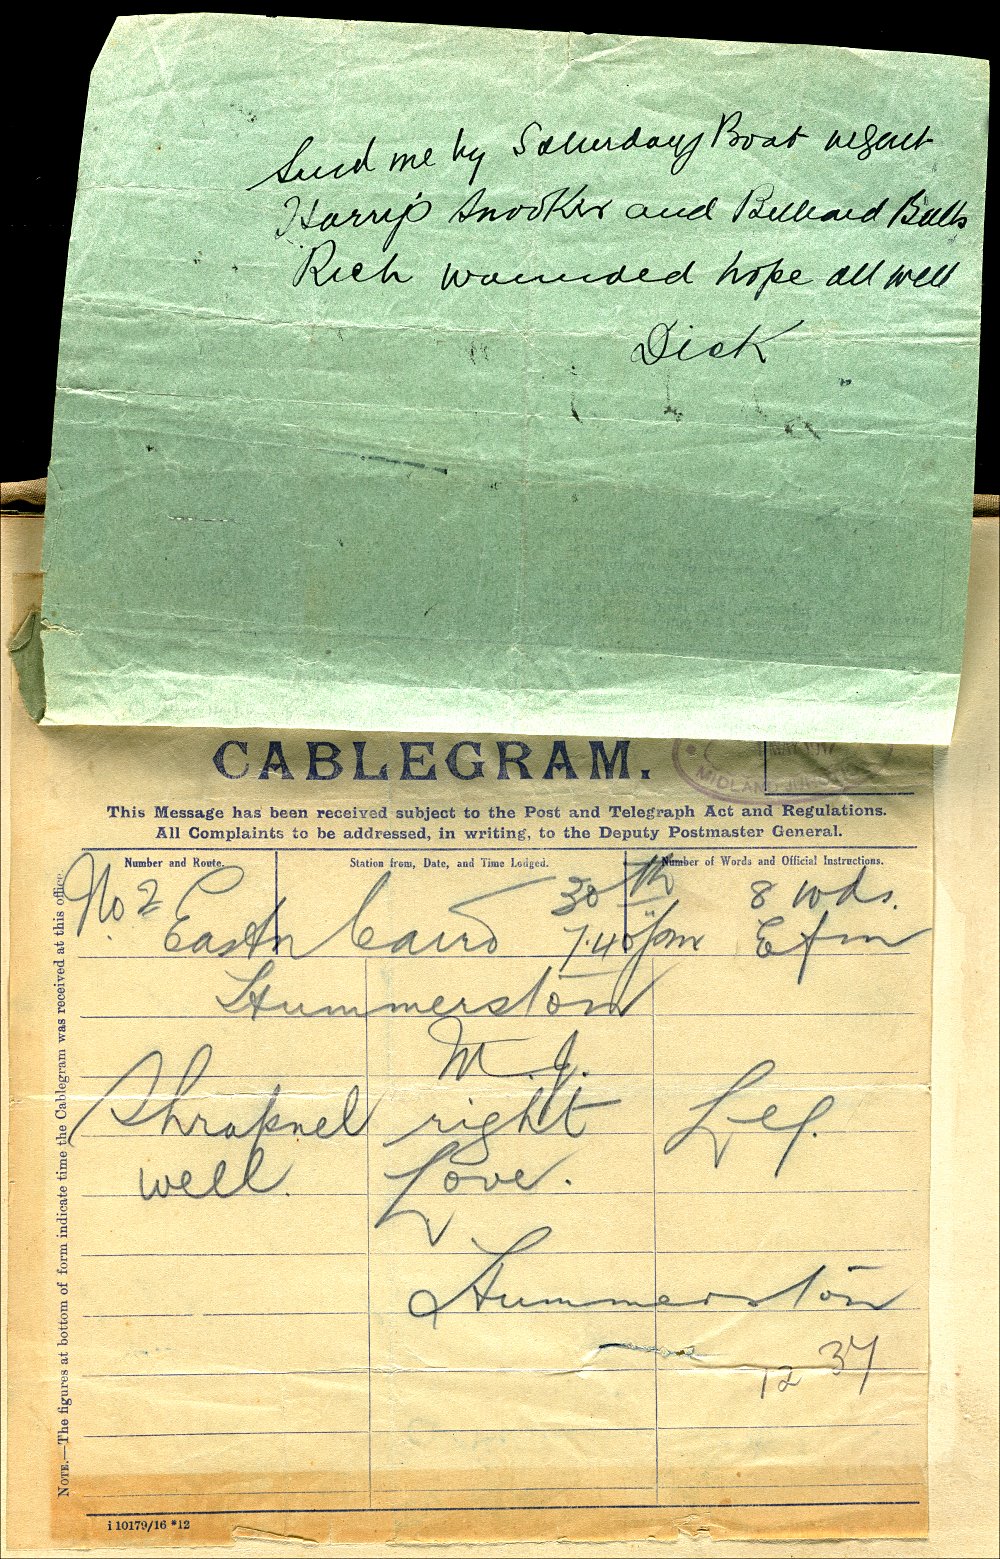 Send me by Saturdays Boat urgent
Harrys Snooker and Billiard Balls
Rich wounded hope all well
Dick
CABLEGRAM.
MIDLAND JUNCTION
This Message has been received subject to the Post and Telegraph Act and Regulations.
All Complaints to be addressed, in writing, to the Deputy Postmaster General.
Number and Route.
Station from, Date, and Time Lodged.
Number of Words and Official Instructions.
No 2
30th
8 wds.
Eastn Cairo
7.40 pm
Efm
Hummerston
M.J.
Shrapnel right Leg.
well. Love.
Hummerston
12 37
NOTE.—The figures at bottom of form indicate time the Cablegram was received at this office.
i 10179/16 *12